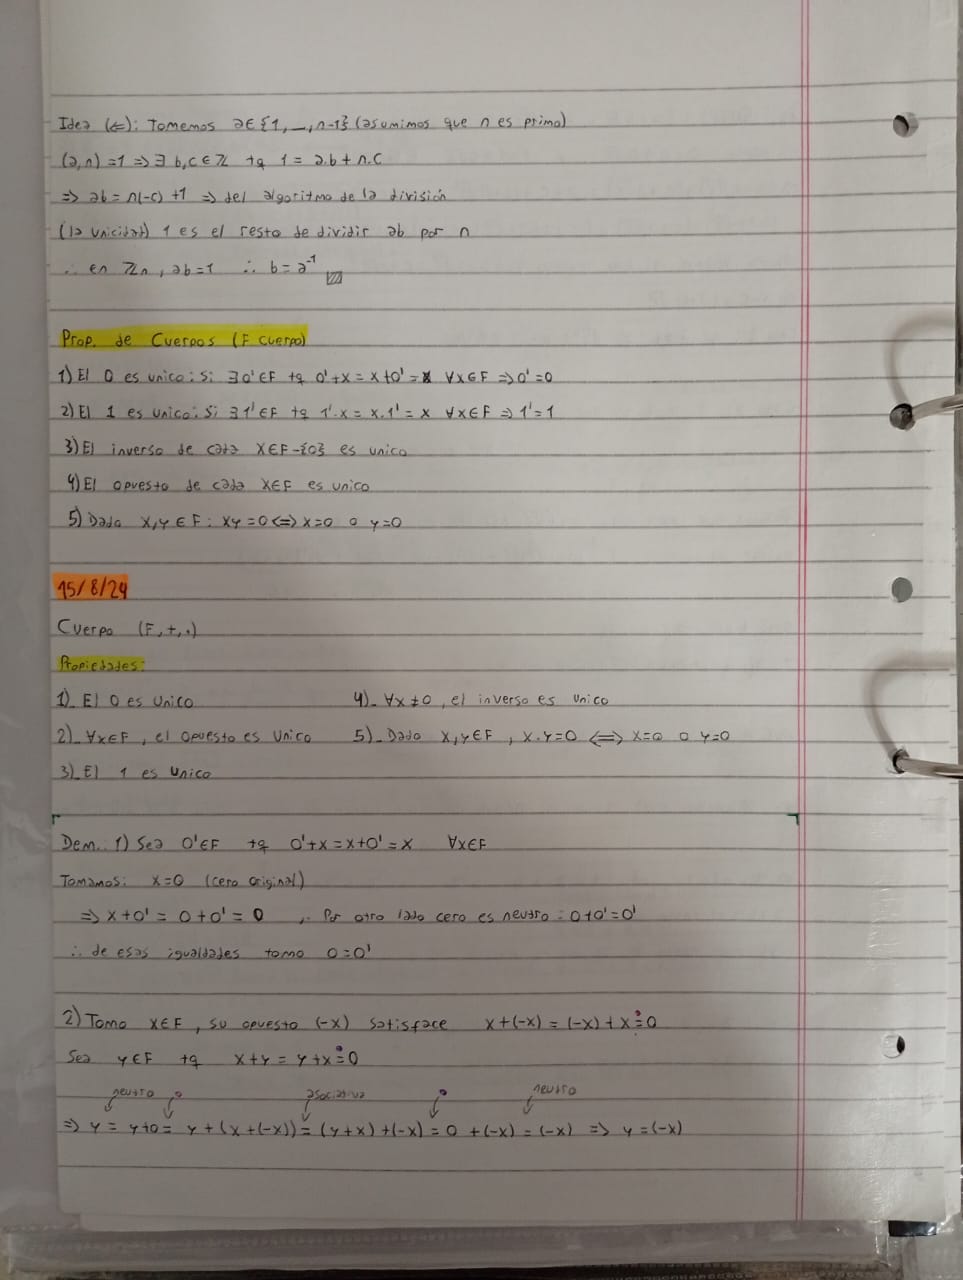 Idea (⇐): Tomemos a∈{1,...,n-1} (asumimos que n es primo)
(a,n)=1 => ∃ b,c ∈ ℤ tq 1= a.b + n.c
=> ab = n(-c) +1 => del algoritmo de la división
(la unicidad) 1 es el resto de dividir ab por n
∴ en ℤn, ab=1 ∴ b=a⁻¹
Prop. de Cuerpos (F cuerpo)
1) El 0 es unico: Si ∃0'∈F tq 0'+x = x+0' = x ∀x∈F => 0'=0
2) El 1 es unico: Si ∃1'∈F tq 1'.x = x.1' = x ∀x∈F => 1'=1
3) El inverso de cada x∈F-{0} es unico
4) El opuesto de cada x∈F es unico
5) Dado x,y ∈ F: xy=0 <=> x=0 o y=0
15/8/24
Cuerpo (F,+,.)
Propiedades:
1)_ El 0 es unico 4)_ ∀x≠0, el inverso es unico
2)_ ∀x∈F, el opuesto es unico 5)_ Dado x,y∈F, x.y=0 <=> x=0 o y=0
3)_ El 1 es unico
Dem.: 1) Sea 0'∈F tq 0'+x = x+0' = x ∀x∈F
Tomamos: x=0 (cero original)
=> x+0' = 0+0' = 0 ,. Por otro lado cero es neutro: 0+0'=0'
∴ de esas igualdades tomo 0=0'
2) Tomo x∈F, su opuesto (-x) satisface x+(-x) = (-x)+x = 0
Sea y∈F tq x+y = y+x = 0
neutro asociativa neutro
=> y = y+0 = y+(x+(-x)) = (y+x)+(-x) = 0 +(-x) = (-x) => y=(-x)